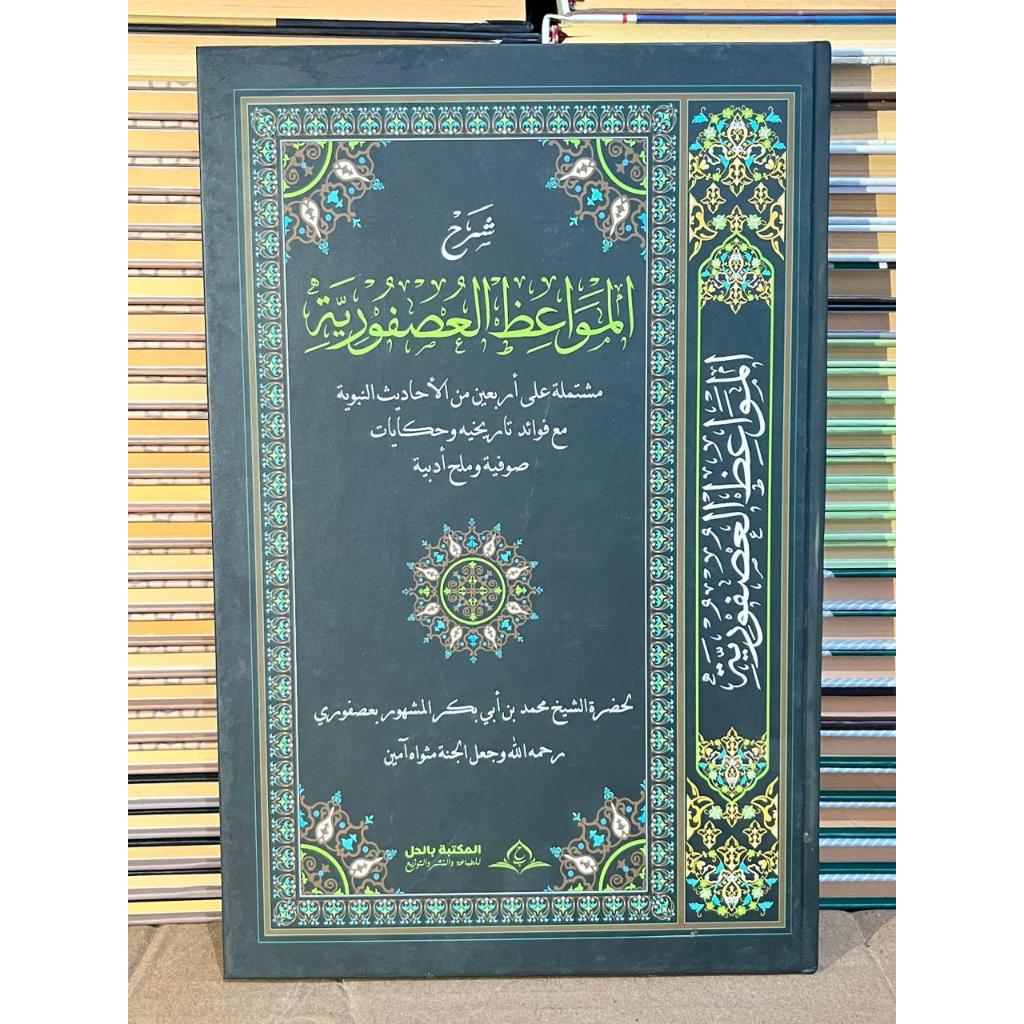 شَرْح
المَوَاعِظ العُصفُورِيَّةِ
مشتملة على أربعين من الأحاديث النبوية
مع فوائد تاريخيه وحكايات
صوفية وملح أدبية
لحضرة الشيخ محمد بن أبي بكر المشهور بعصفوري
رحمه الله وجعل الجنة مثواه آمين
المكتبة بالحل
للطباعة والنشر والتوزيع
المَوَاعِظ العُصفُورِيَّةِ